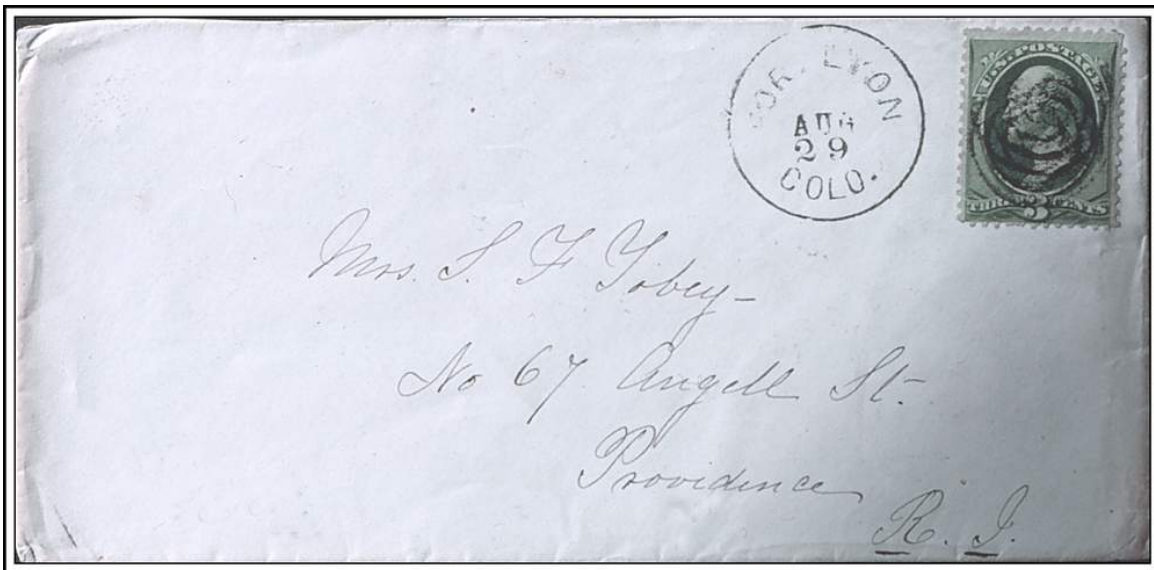 LYON
AUG
29
COLO.
U.S. POSTAGE
THREE 3 CENTS
Mrs. S. F Tobey-
No 67 Angell St-
Providence
R. I.